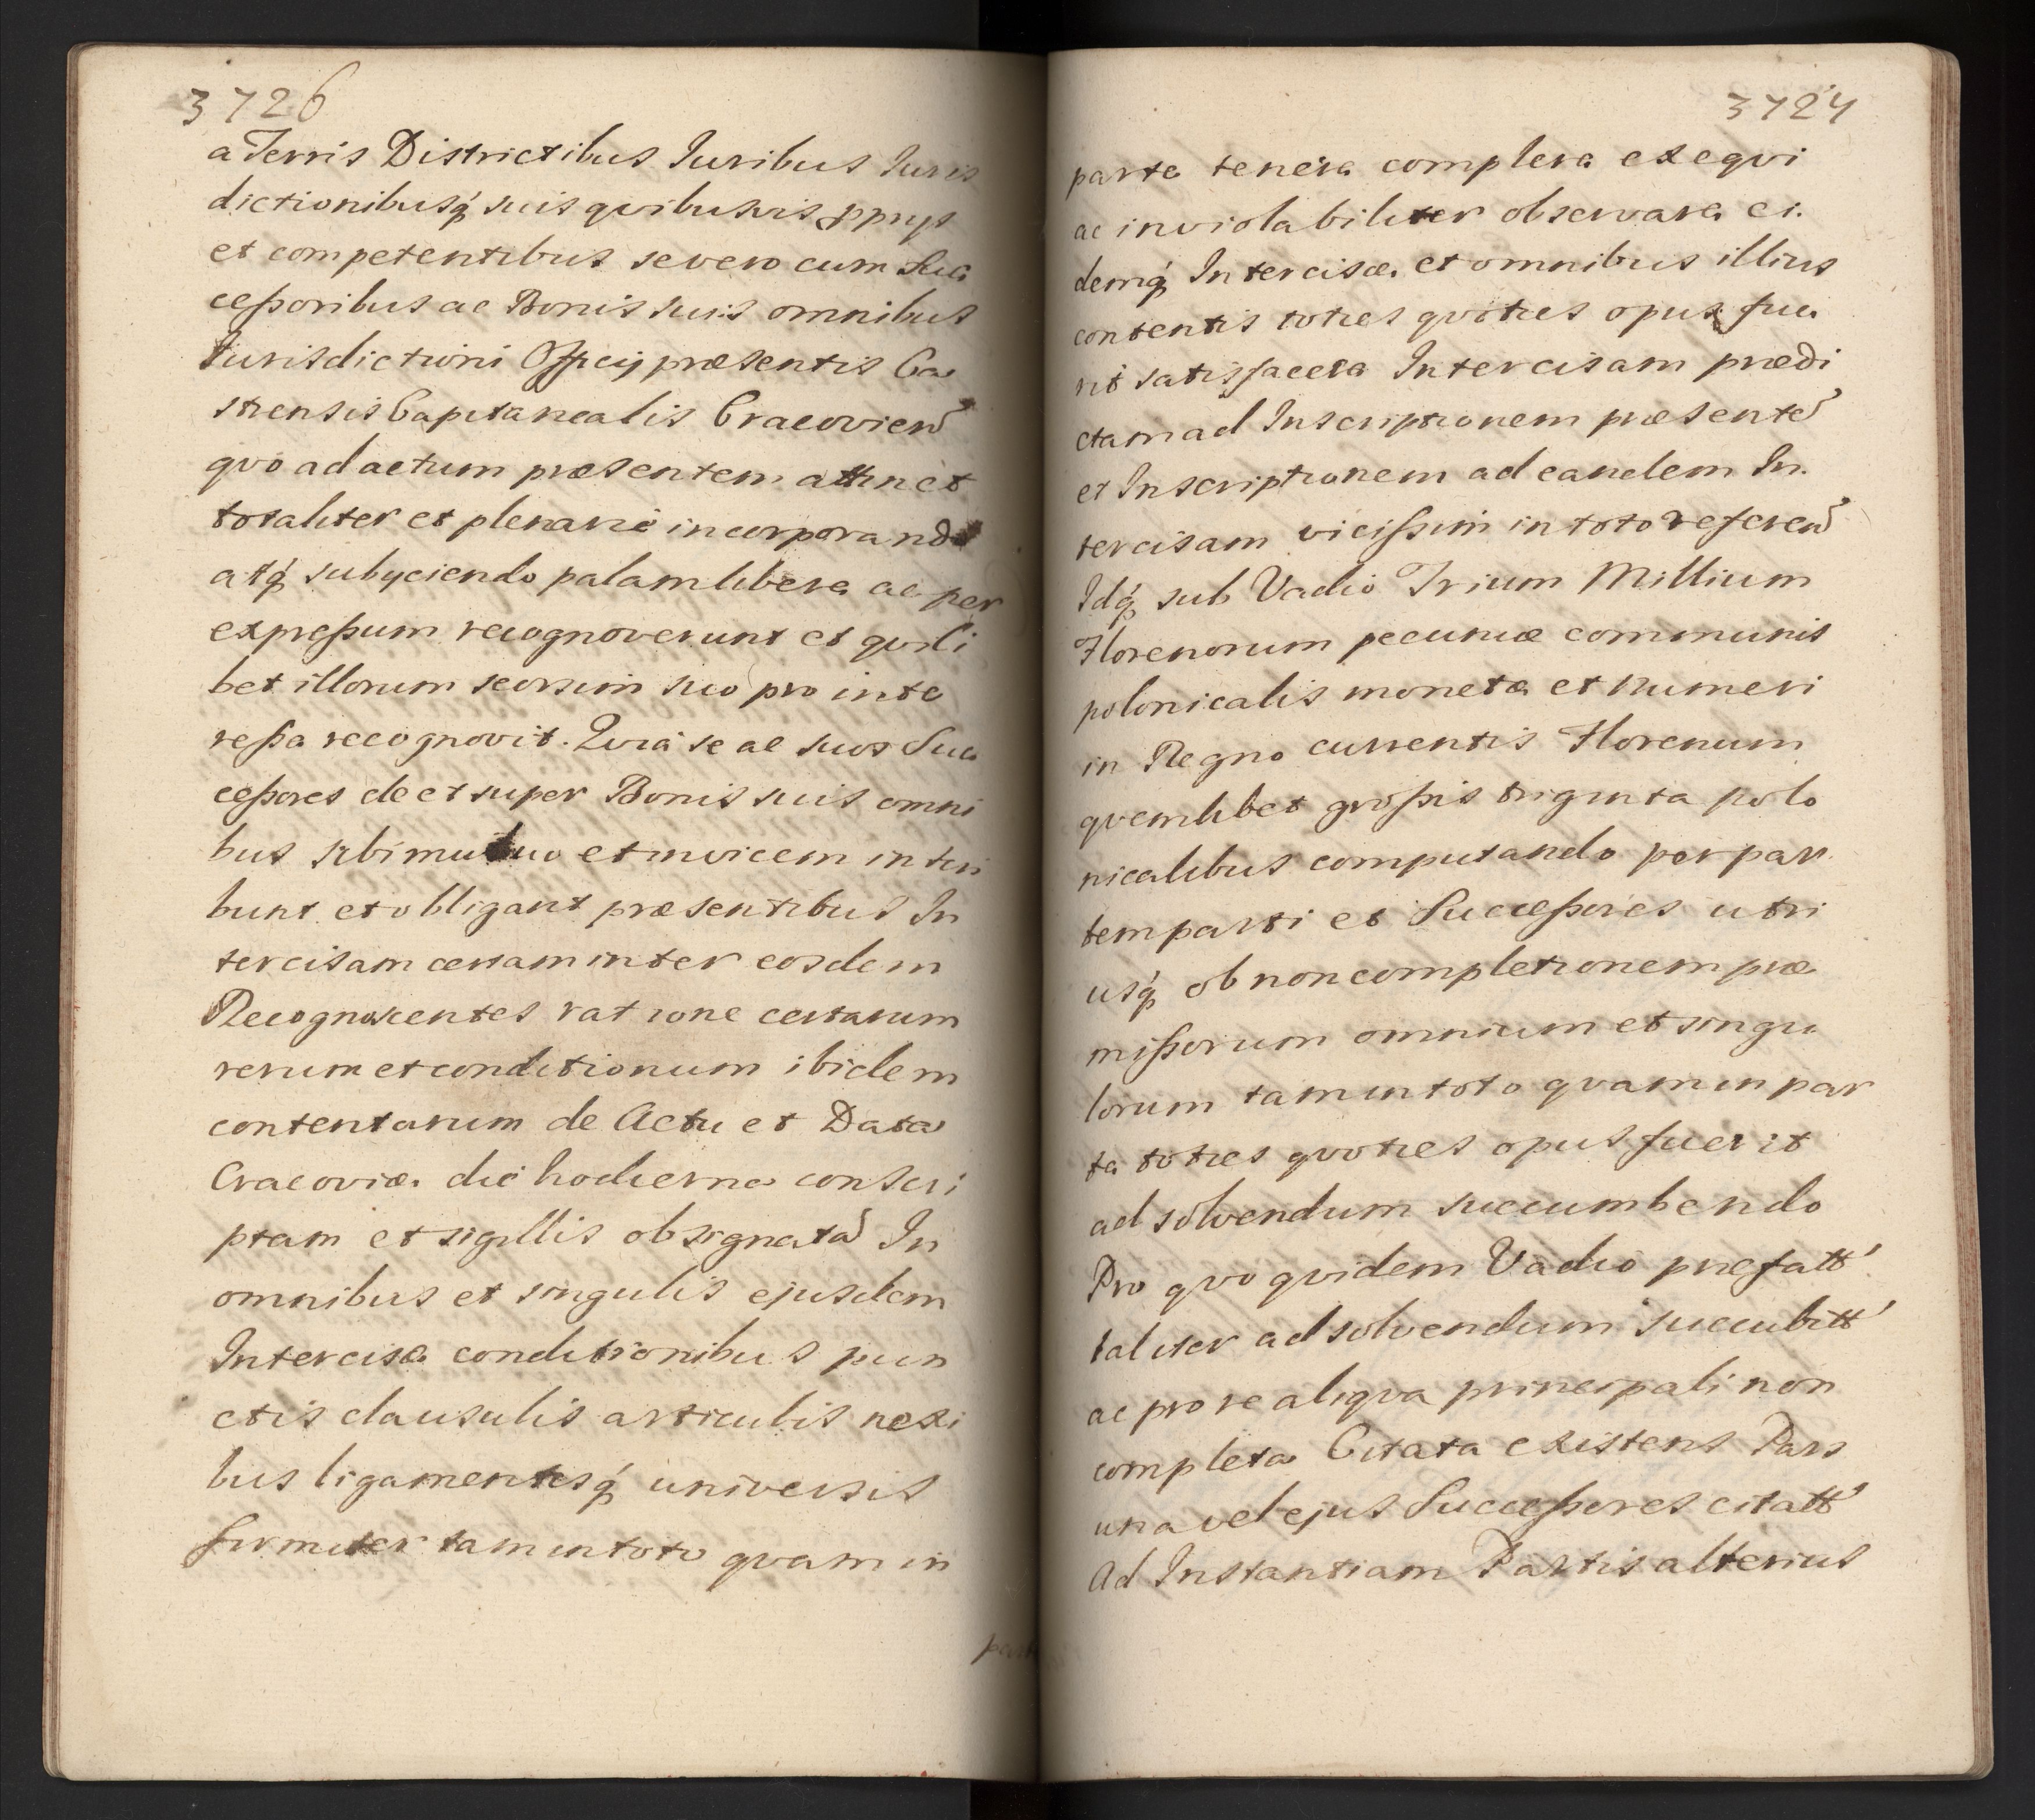 3726
a Terris Districtibus Iuribus Iuris
dictionibusq́ suis qvibusvis ppnys
et competentibus se vero cum Suc
ceßoribus ac Bonis suis omnibus
Iurisdictioni Officij præsentis Ca
strensis Capitanealis Cracovien
qvo ad actum præsentem attinet
totaliter et plenarie incorporando
atq́ subyciendo palam libere ac per
expreßum recognoverunt et qvili
bet illorum seorsim suo pro inte
reße recognovit. Qvia se ac suos Suc
ceßores de et super Bonis suis omni
bus sibi mutuo et invicem inscri
bunt et obligant præsentibus In
tercisam certam inter eosdem
Recognoscentes ratione certarum
rerum et conditionum ibidem
contentarum de Actu et Data
Cracoviæ die hodierna conscri
ptam et sigillis obsignata In
omnibus et singulis ejusdem
Intercisæ conditionibus pun
ctis clausulis articulis nexi
bus ligamentisq́ universis
firmiter tam in toto qvam in
parte
3727
parte tenere complere exeqvi
ac inviolabiliter observare ei.
demq́ Intercisæ et omnibus illius
contentis toties qvoties opus fue
rit satisfacere Intercisam prædi
ctam ad Inscriptionem præsente
et Inscriptionem ad eandem In.
tercisam vicißim in toto referen
Idq́ sub Vadio Trium Millium
Florenorum pecuniæ communis
polonicalis monetæ et numeri
in Regno currentis Florenum
qvemlibet großis triginta polo
nicalibus computando per par
tem parti et Succeßores utri
usq́ ob non completionem præ
mißorum omnium et singu
lorum tam in toto qvam in par
te toties qvoties opus fuerit
ad solvendum succumbendo
Pro qvo qvidem Vadio præfatt
taliter ad solvendum succubitt
ac pro re aliqva principali non
completa Citata existens Pars
una vel ejus Succeßores citatt
Ad Instantiam Partis alterius